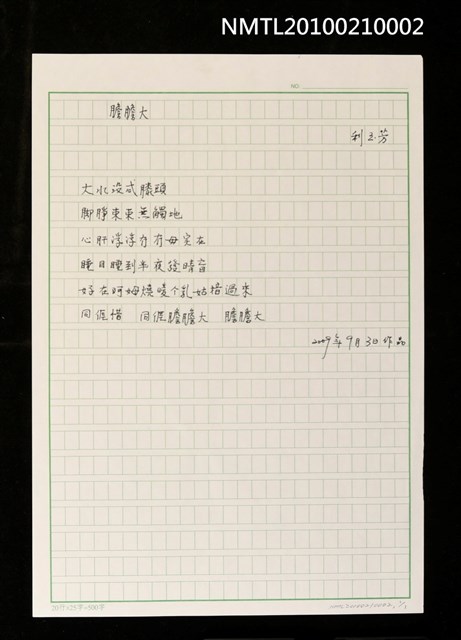 NMTL20100210002
NO.
膽膽大
利玉芳
大水沒忒膝頭
腳脖東東無觸地
心肝浮浮冇冇毋實在
睡目睡到半夜發時盲
好在阿姆燒暖个乳姑揞過來
同𠊎惜 同𠊎膽膽大 膽膽大
2009年9月3日作品
20行×25字=500字
NMTL20100210002, 1/1